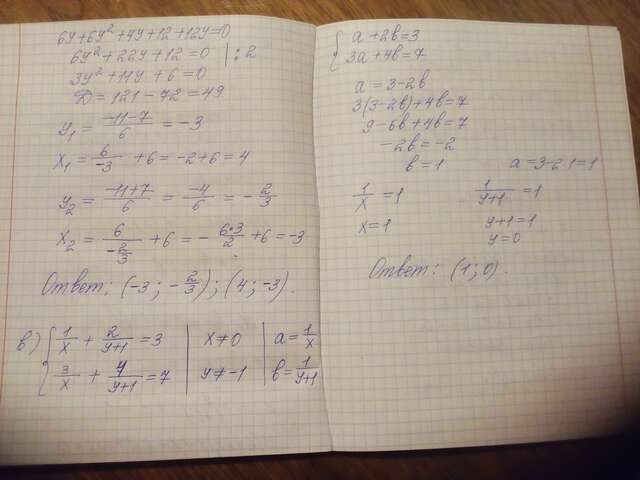 6y+6y²+4y+12+12y=0
6y²+22y+12=0 |:2
3y²+11y+6=0
D=121-72=49
y₁ = (-11-7)/6 = -3
x₁ = 6/-3 +6 = -2+6 = 4
y₂ = (-11+7)/6 = -4/6 = -2/3
x₂ = 6/(-2/3) +6 = -6·3/2 +6 = -3
Ответ: (-3; -2/3); (4; -3).
в) { 1/x + 2/(y+1) = 3 | x≠0 | a = 1/x
3/x + 4/(y+1) = 7 | y≠-1 | b = 1/(y+1)
{ a+2b=3
3a+4b=7
a=3-2b
3(3-2b)+4b=7
9-6b+4b=7
-2b=-2
b=1 a=3-2·1=1
1/x = 1 1/(y+1) = 1
x=1 y+1=1
y=0
Ответ: (1; 0).